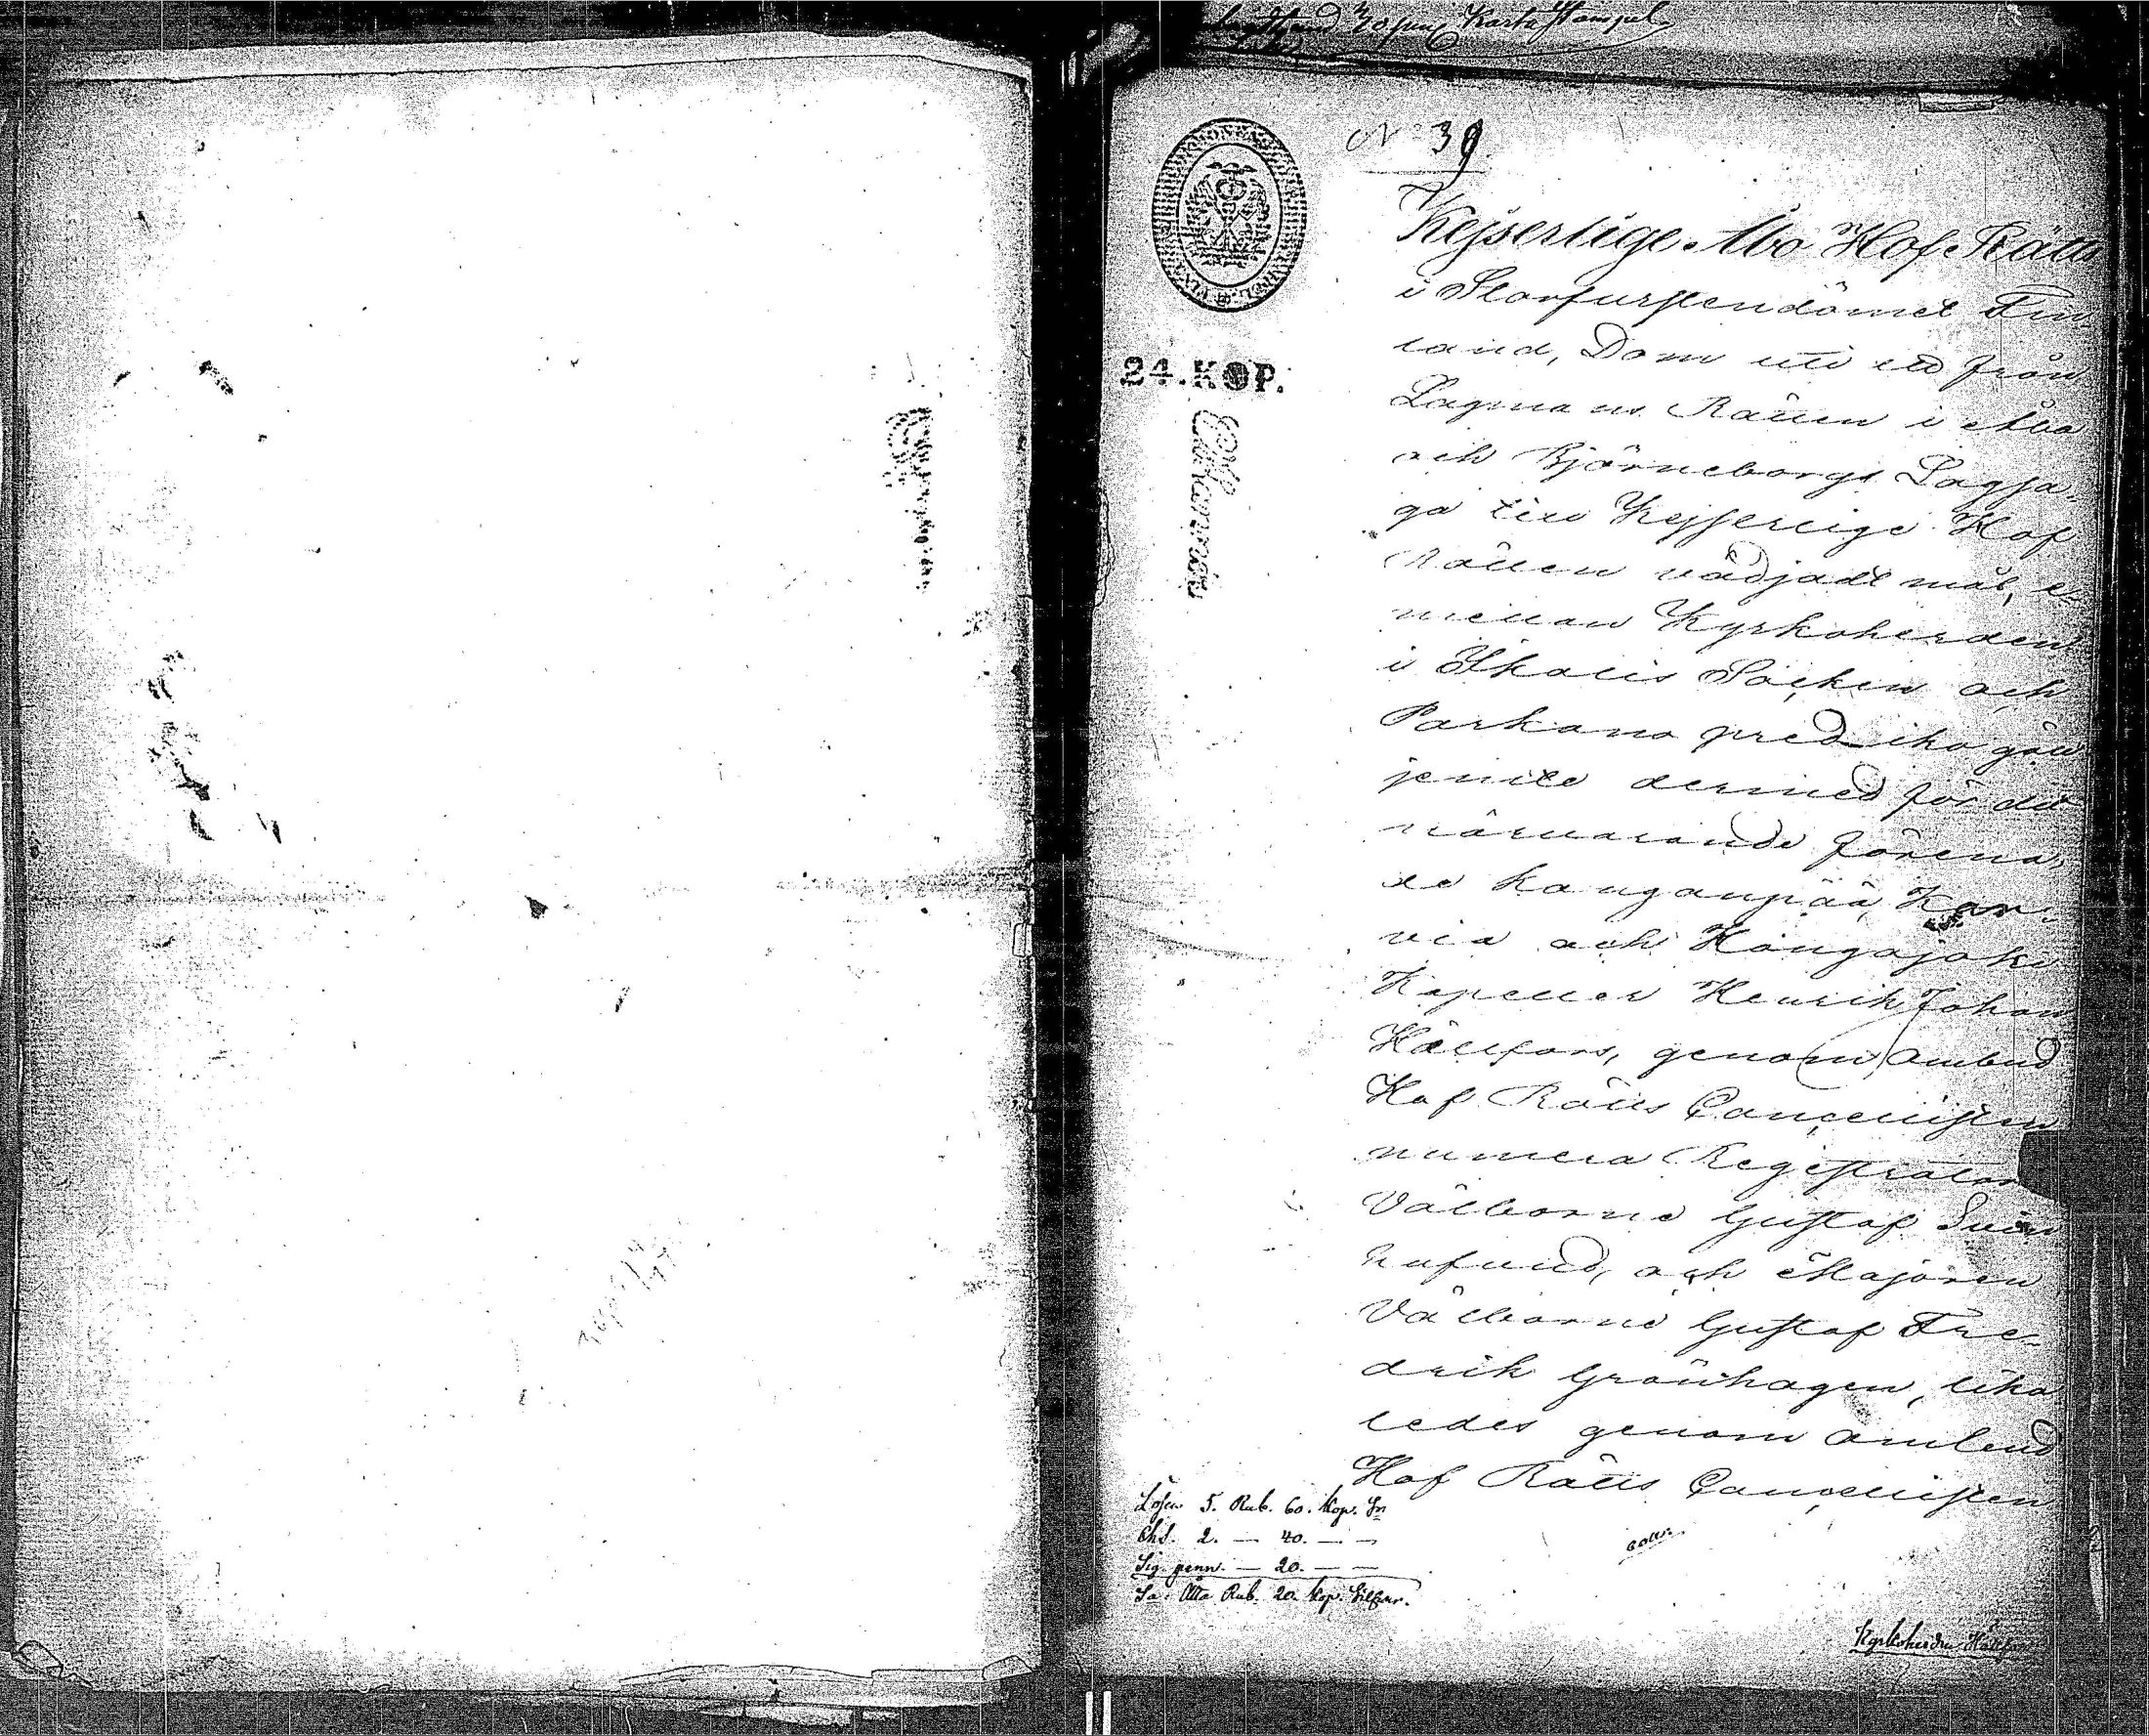 20 Karta Stämpel
No 39
Kejserlige Åbo Hof Rätts
i Storfurstendömet Fin-
land, Dom uti ett från
Lagmans Rätten i Åbo
och Björneborgs Lagsa-
ga till Kejserlige Hof
Rätten vädjadt mål, e-
mellan Kyrkoherden
i Ikalis Socken och
Parkano predikogäll
jemte dermed för det
närvarande förena-
de Kangaupää, Kar-
via och Hongojoki
Kapeller Henrik Johan
Hällfors, genom ombud
Hof Rätts Cancellisten
numera Registratorn
Välborne Gustaf Svin
hufvud, och Majoren
Välborne Gustaf Fre-
drik Grönhagen, lika
ledes genom ombud
Hof Rätts Cancellisten
24. KOP.
Lösen 5. Rub. 60. kop. Sr
Chs. 2. — 40. — —
Sig. penn. — 20. — —
Sa: Åtta Rub. 20. kop. Silfver.
coll.
Kyrkoherden Hällfors